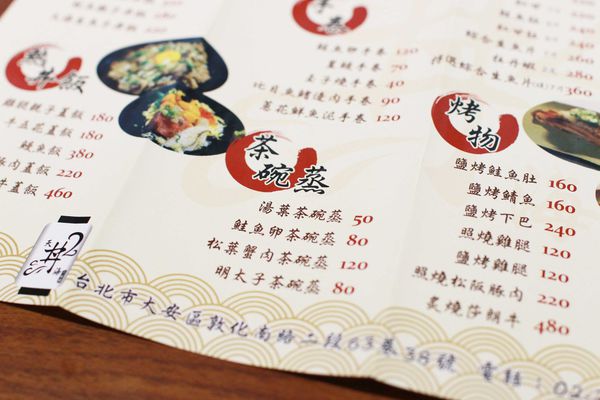 手卷
鮭魚卵手卷 120
星鰻手卷 130
玉子燒手卷 40
比目魚鰭邊肉手卷 90
蔥花鮮魚泥手卷 120
牡丹蝦 260
特選綜合生魚片 360
丼飯
雞腿親子蓋飯 180
牛五花蓋飯 180
鰻魚 380
豚肉蓋飯 220
牛蓋飯 460
茶碗蒸
湯葉茶碗蒸 50
鮭魚卵茶碗蒸 80
松葉蟹肉茶碗蒸 120
明太子茶碗蒸 80
烤物
鹽烤鮭魚肚 160
鹽烤鯖魚 160
鹽烤下巴 240
照燒雞腿 120
鹽烤雞腿 120
照燒松阪豚肉 220
炙燒莎朗牛 480
天丼2
台北市大安區敦化南路二段63巷38號 電話：02